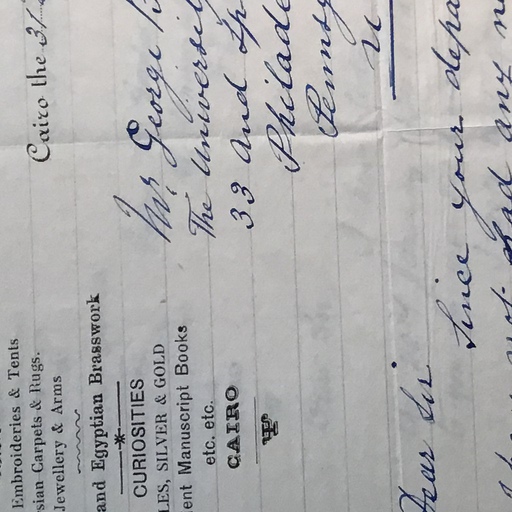 Embroideries & Tents
sian Carpets & Rugs.
Jewellery & Arms
and Egyptian Brasswork
CURIOSITIES
LES, SILVER & GOLD
ent Manuscript Books
etc. etc.
CAIRO
Cairo the 31
Mr. George B
The Universit
33 and Sp
Philade
Pennsy
U
Dear Sir
Since your depa
have not had any n